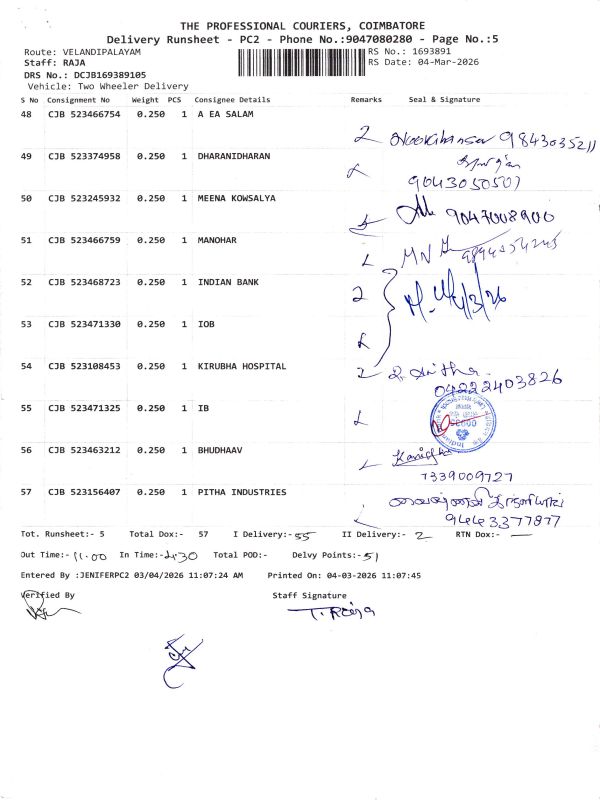 THE PROFESSIONAL COURIERS, COIMBATORE
Delivery Runsheet - PC2 - Phone No.:9047080280 - Page No.:5
Route: VELANDIPALAYAM
RS No.: 1693891
Staff: RAJA
RS Date: 04-Mar-2026
DRS No.: DCJB169389105
Vehicle: Two Wheeler Delivery
S No Consignment No Weight PCS Consignee Details Remarks Seal & Signature
48 CJB 523466754 0.250 1 A EA SALAM
9843035211
49 CJB 523374958 0.250 1 DHARANIDHARAN
9043050507
50 CJB 523245932 0.250 1 MEENA KOWSALYA
9047008900
51 CJB 523466759 0.250 1 MANOHAR
52 CJB 523468723 0.250 1 INDIAN BANK
4/3/26
53 CJB 523471330 0.250 1 IOB
54 CJB 523108453 0.250 1 KIRUBHA HOSPITAL
04222403826
55 CJB 523471325 0.250 1 IB
56 CJB 523463212 0.250 1 BHUDHAAV
7339009727
57 CJB 523156407 0.250 1 PITHA INDUSTRIES
9443377877
Tot. Runsheet:- 5 Total Dox:- 57 I Delivery:- 55 II Delivery:- 2 RTN Dox:- —
Out Time:- 11.00 In Time:- 4.30 Total POD:- Delvy Points:- 51
Entered By :JENIFERPC2 03/04/2026 11:07:24 AM Printed On: 04-03-2026 11:07:45
Verified By Staff Signature
T. Raja